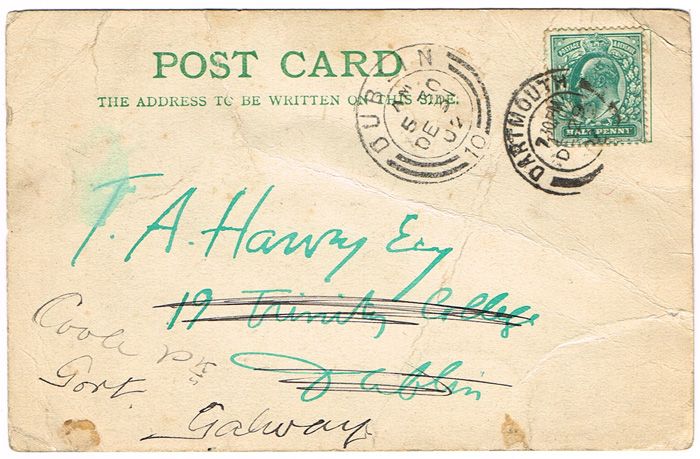 POST CARD
THE ADDRESS TO BE WRITTEN ON THIS SIDE.
DUBLIN
5 AM
DE 30
02
10
POSTAGE & REVENUE
HALF PENNY
DARTMOUTH
T. A. Harvey Esq
19 Trinity College
Dublin
Coole
Gort
Galway